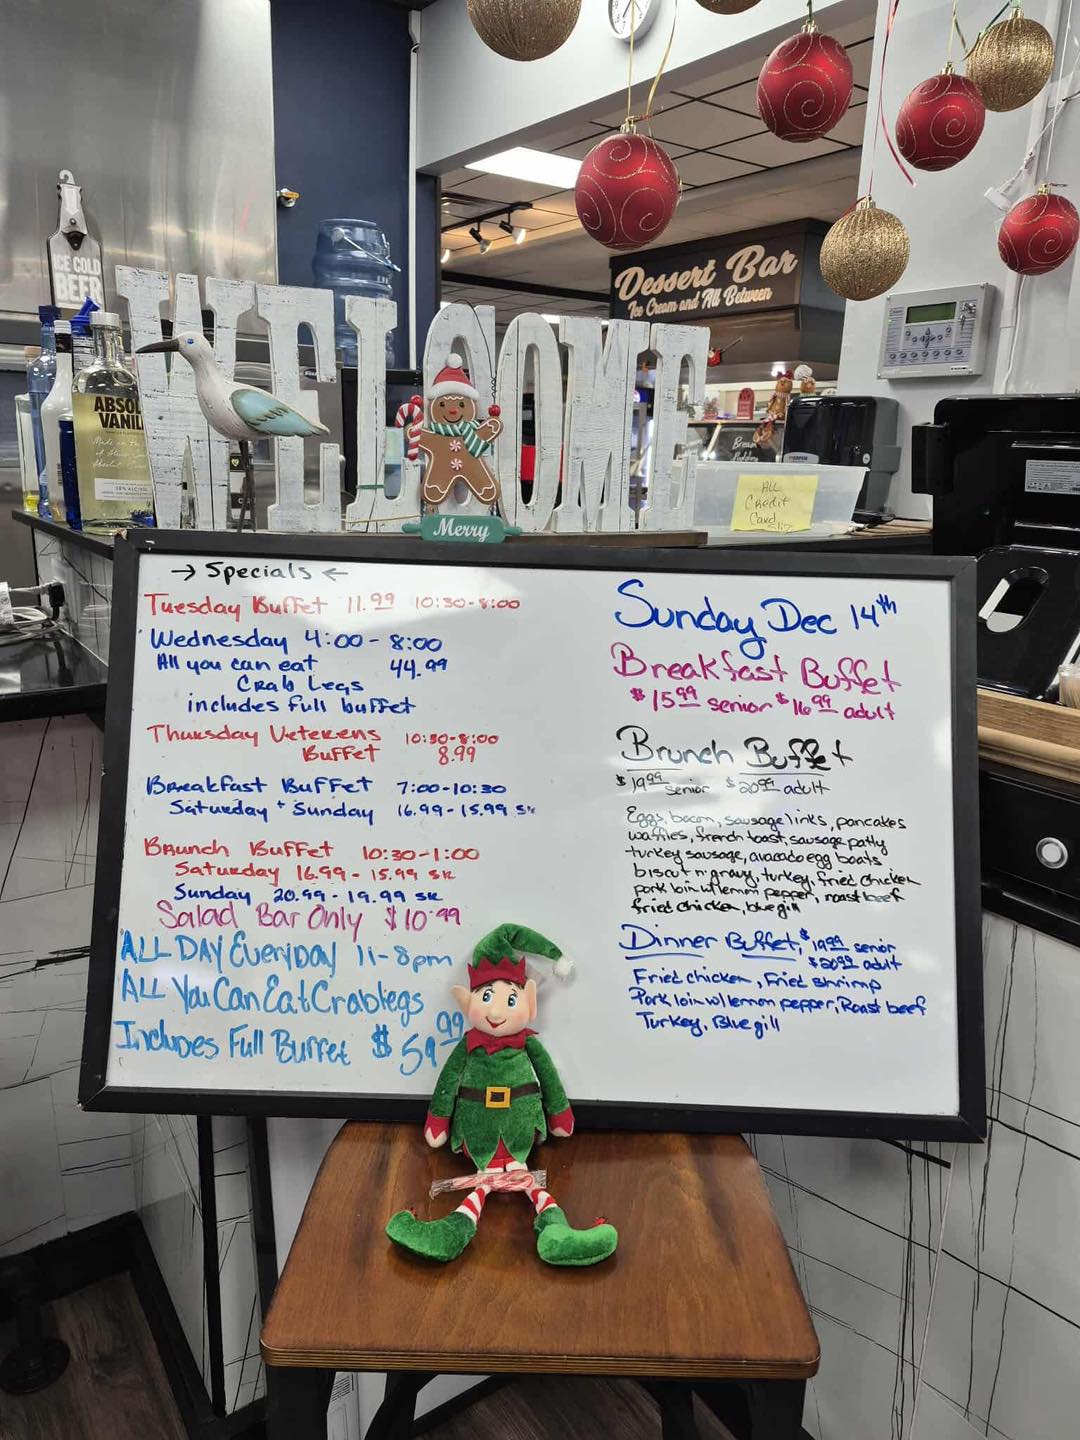 ICE COLD
BEER
WELCOME
Dessert Bar
Ice Cream and All Between
ABSOL
VANIL
Merry
ALL
Credit
Card
→ Specials ←
Tuesday Buffet 11.99 10:30-8:00
Wednesday 4:00-8:00
All you can eat 44.99
Crab Legs
includes full buffet
Thursday Veterens 10:30-8:00
Buffet 8.99
Breakfast Buffet 7:00-10:30
Saturday + Sunday 16.99-15.99 SR
Brunch Buffet 10:30-1:00
Saturday 16.99-15.99 SR
Sunday 20.99-19.99 SR
Salad Bar Only $10.99
ALL DAY EVERYDAY 11-8pm
ALL You Can Eat Crablegs
Includes Full Buffet $59 99
Sunday Dec 14th
Breakfast Buffet
$15 99 senior $16 99 adult
Brunch Buffet
$19 99 senior $20 99 adult
Eggs, bacon, sausage links, pancakes
waffles, french toast, sausage patty
turkey sausage, avacado egg boats
biscut n gravy, turkey, fried chicken
pork loin w/lemon pepper, roast beef
fried chicken, blue gill
Dinner Buffet, $19 99 senior
$20 99 adult
Fried chicken, Fried shrimp
Pork loin w/lemon pepper, Roast beef
Turkey, Blue gill